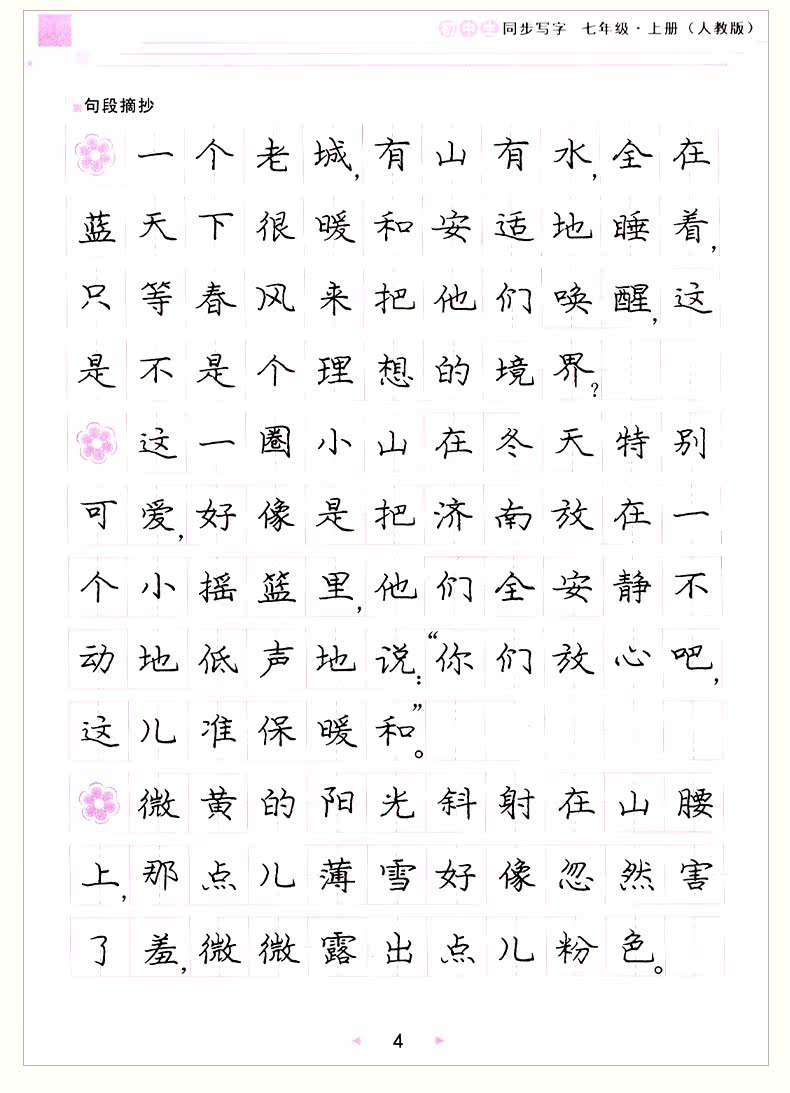 初中生 同步写字 七年级·上册（人教版）
句段摘抄
一个老城，有山有水，全在
蓝天下很暖和安适地睡着，
只等春风来把他们唤醒，这
是不是个理想的境界？
这一圈小山在冬天特别
可爱，好像是把济南放在一
个小摇篮里，他们全安静不
动地低声地说：“你们放心吧，
这儿准保暖和”。
微黄的阳光斜射在山腰
上，那点儿薄雪好像忽然害
了羞，微微露出点儿粉色。
4